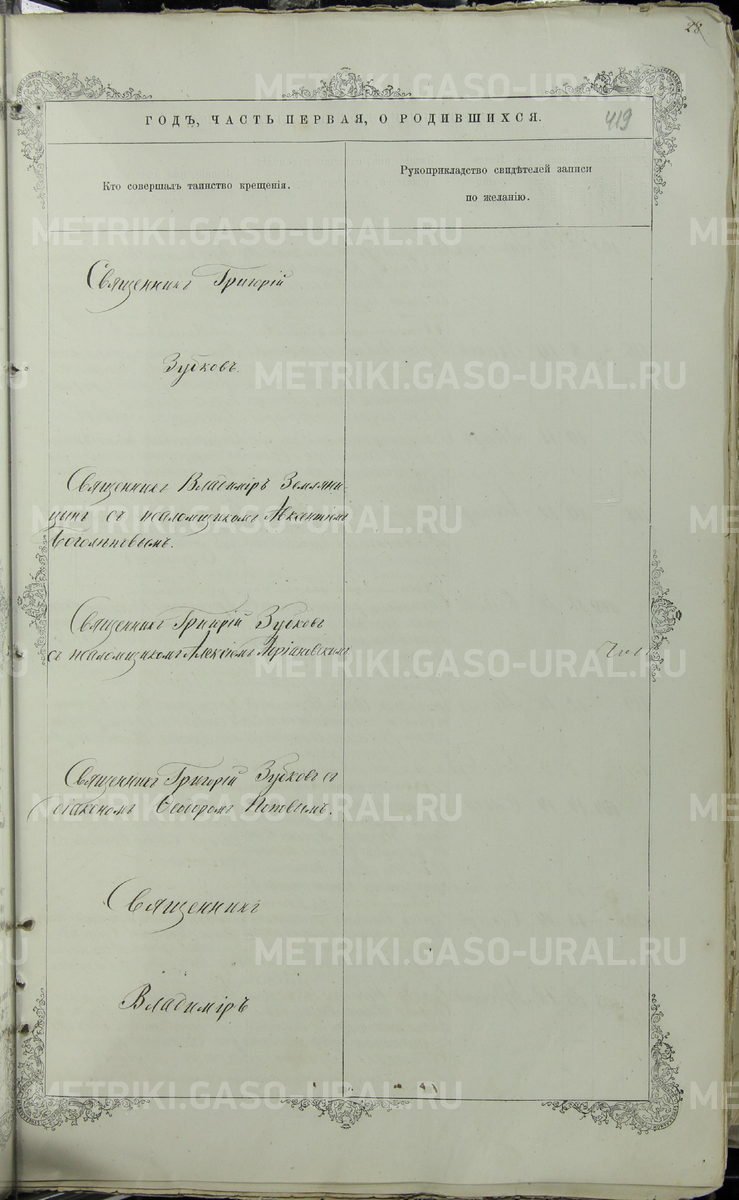 28
ГОДЪ, ЧАСТЬ ПЕРВАЯ, О РОДИВШИХСЯ.
419
Кто совершалъ таинство крещенія.
Рукоприкладство свидѣтелей записи
по желанію.
Священникъ Григорій
Зубковъ.
Священникъ Владиміръ Земляни-
цынъ съ псаломщикомъ Авксентіемъ
Боголеповымъ.
Священникъ Григорій Зубковъ
съ псаломщикомъ Алексіемъ
Священникъ Григорій Зубковъ съ
діакономъ Ѳеодоромъ Поповымъ.
Священникъ
Владиміръ
METRIKI.GASO-URAL.RU